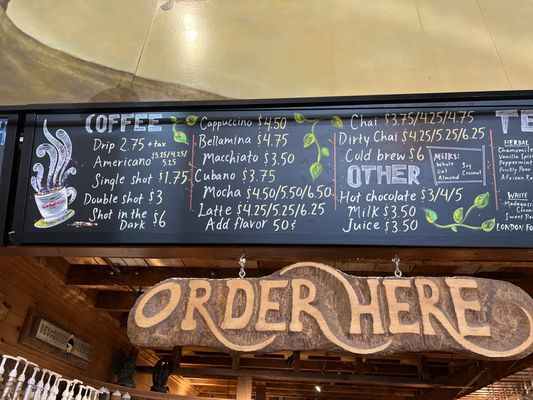 COFFEE
Drip 2.75 +tax
Americano $3.25 $4.25
Single shot $1.75
Double shot $3
Shot in the
Dark $6
Cappuccino $4.50
Bellamina $4.75
Macchiato $3.50
Cubano $3.75
Mocha $4.50/5.50/6.50
Latte $4.25/5.25/6.25
Add flavor 50¢
Chai $3.75/4.25/4.75
Dirty Chai $4.25/5.25/6.25
Cold brew $6
OTHER
MILKS:
Whole Soy
Oat
Almond Coconut
Hot chocolate $3/4/5
Milk $3.50
Juice $3.50
TE
HERBAL
Chamomile
Vanilla Spice
Peppermint
Prickly Pear
African R
WHITE
Madagascar
Coconut
Sweet
LONDON
ORDER HERE